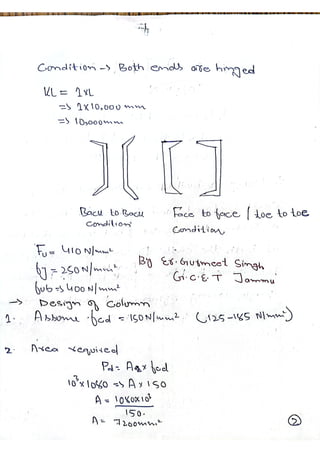 Condition → Both ends are hinged
KL = 1xL
=> 1x10,000 mm
=> 10,000mm
Back to Back
Condition
Face to face / toe to toe
Condition
Fu = 410 N/mm²
fy = 250 N/mm²
fub => 400 N/mm²
By Er. Gurmeet Singh
G.C.E.T Jammu
→ Design of Column
1. Assume fcd = 150N/mm² (125-185 N/mm²)
2. Area required
Pd = Ag x fcd
10³x1080 => A x 150
A = 1080x10³
150.
A = 7200mm²
2